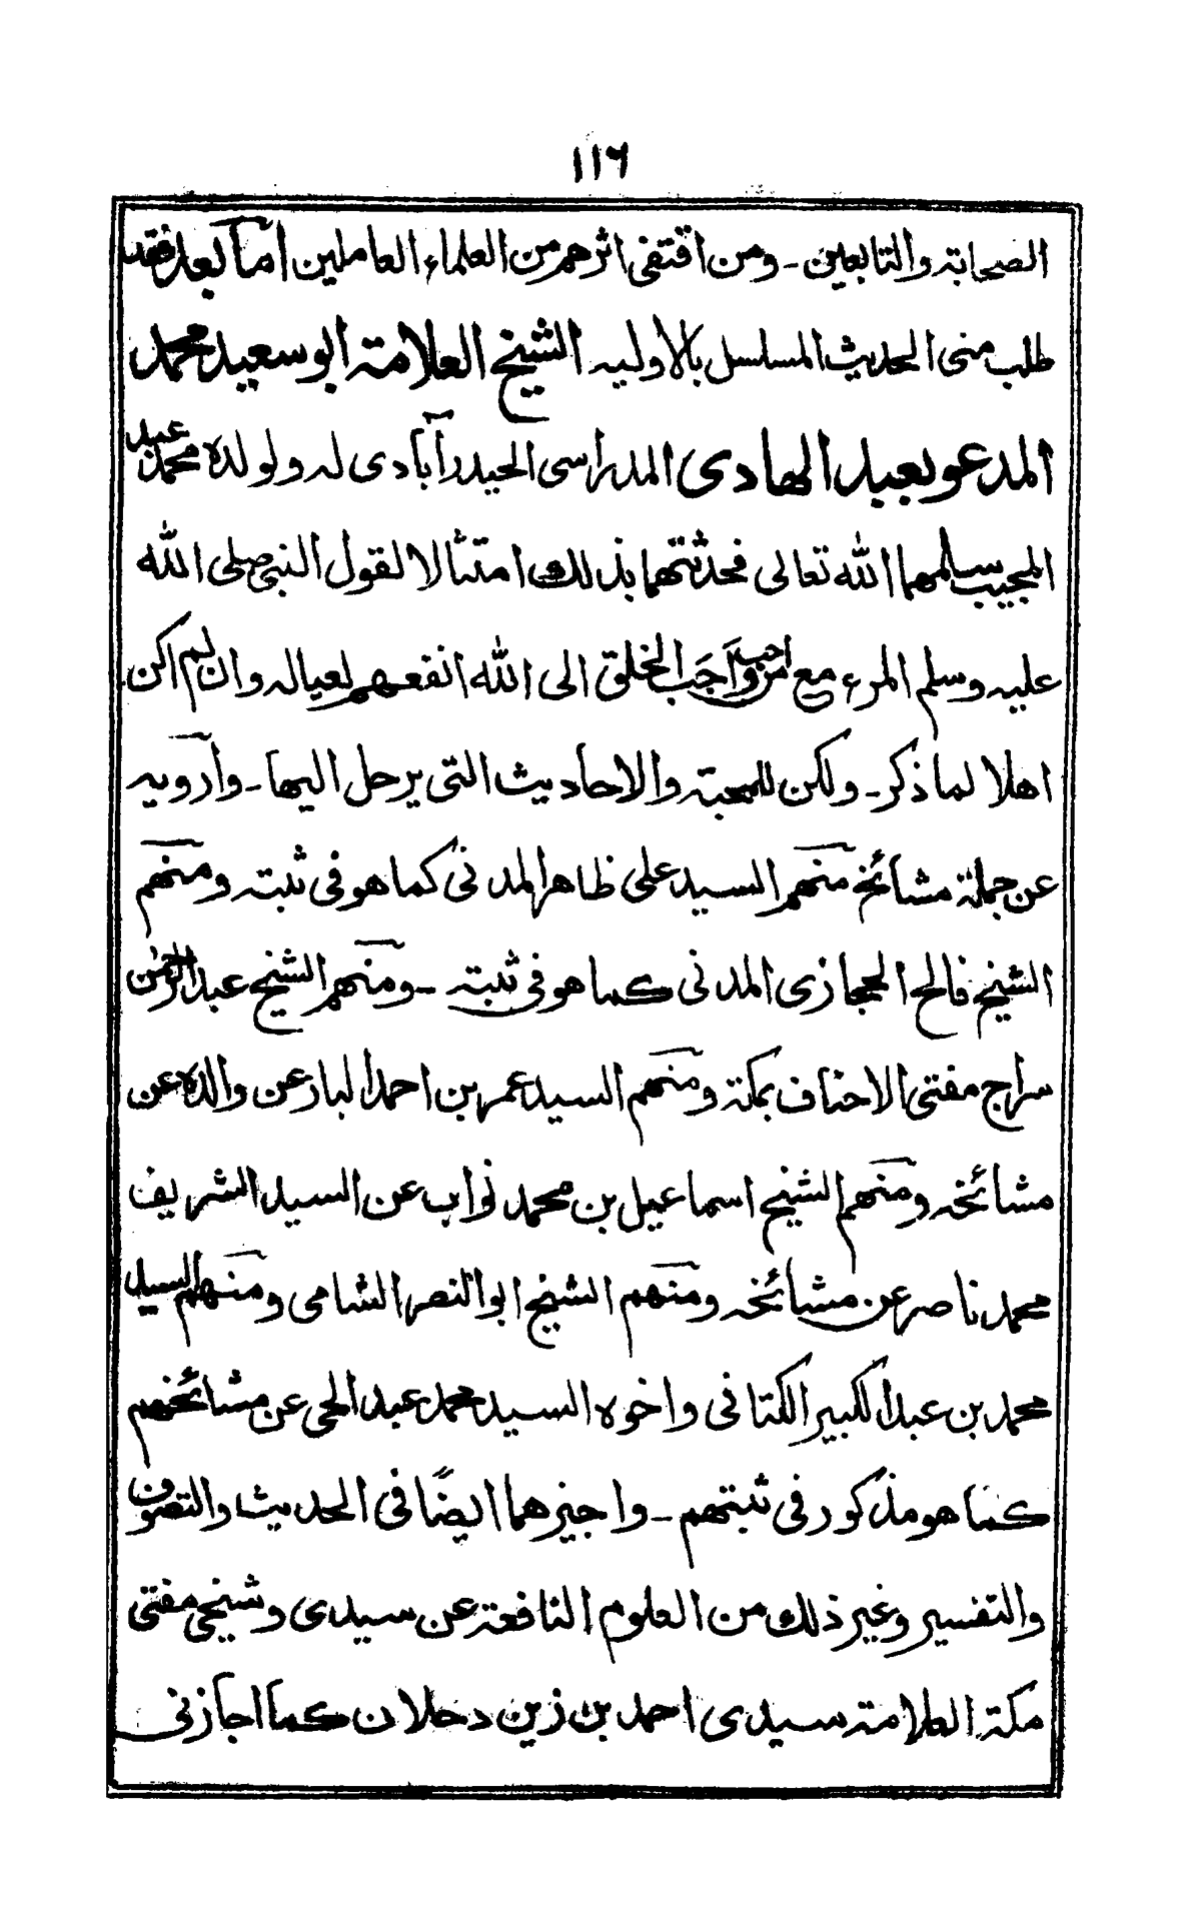 ١١٦
الصحابة والتابعين - ومن اقتفى اثرهم من العلماء العاملين اما بعد فقد
طلب منى الحديث المسلسل بالأوليه الشيخ العلامة ابو سعيد محمد
المدعو بعبد الهادى المدراسى الحيدرآبادى له ولولده محمد عبد
المجيب سلمهما الله تعالى فحدثتهما بذلك امتثالا لقول النبى صلى الله
عليه وسلم المرء مع من احب واَحَب الخلق الى الله انفعهم لعياله وان لم اكن
اهلا لما ذكر - ولكن للمحبة والاحاديث التى يرحل اليها - وارويه
عن جملة مشائخ منهم السيد على ظاهر المدنى كما هو فى ثبته ومنهم
الشيخ فالح الحجازى المدنى كما هو فى ثبته - ومنهم الشيخ عبد الرحمن
سراج مفتى الاحناف بمكة ومنهم السيد عمر بن احمد البار عن والده عن
مشائخه ومنهم الشيخ اسماعيل بن محمد نواب عن السيد الشريف
محمد ناصر عن مشائخه ومنهم الشيخ ابو النصر الشامى ومنهم السيد
محمد بن عبد الكبير الكتانى واخوه السيد محمد عبد الحى عن مشائخهم
كما هو مذكور فى ثبتهم - واجيزهما ايضًا فى الحديث والتصوف
والتفسير وغير ذلك من العلوم النافعة عن سيدى وشيخى مفتى
مكة العلامة سيدى احمد بن زين دحلان كما اجازنى